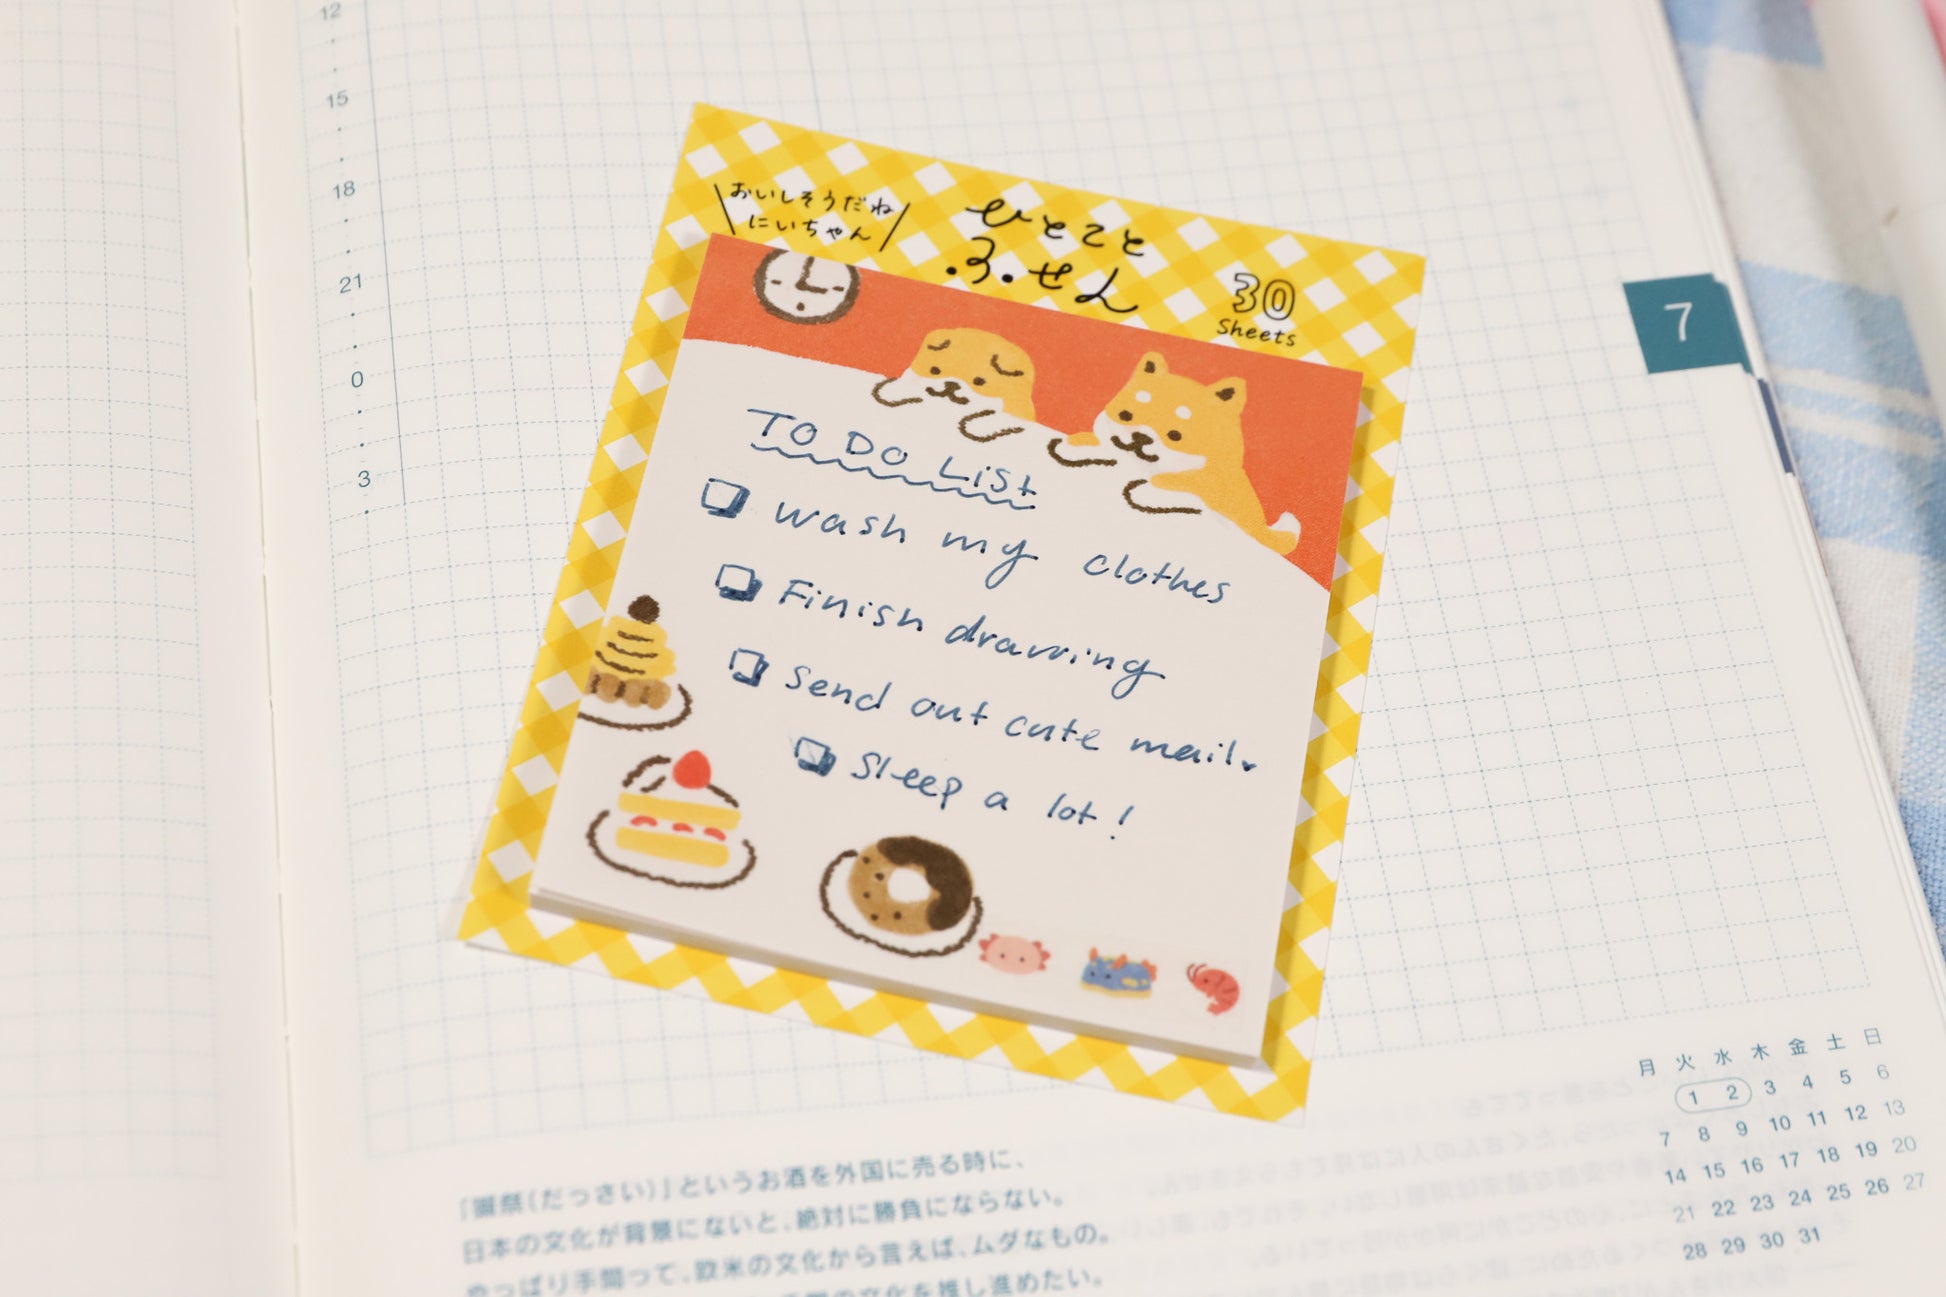 12
15
18
21
0
3
おいしそうだね
にいちゃん
ひとこと
ふせん
30
Sheets
7
TO DO List
wash my clothes
Finish drawing
Send out cute mail.
Sleep a lot!
月 火 水 木 金 土 日
1 2 3 4 5 6
7 8 9 10 11 12 13
14 15 16 17 18 19 20
21 22 23 24 25 26 27
28 29 30 31
「獺祭(だっさい)」というお酒を外国に売る時に、
日本の文化が背景にないと、絶対に勝負にならない。
やっぱり手間って、欧米の文化から言えば、ムダなもの。
の文化を推し進めたい。